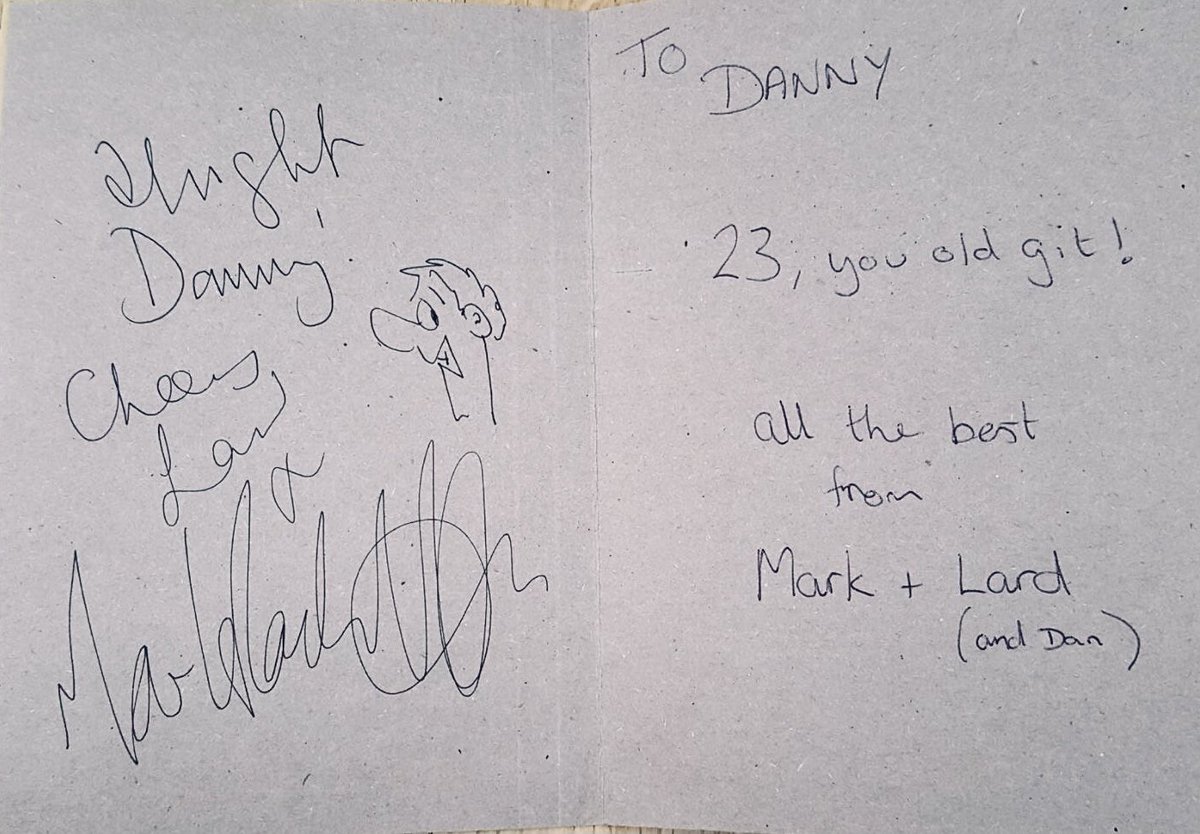 Alright
Danny!
Cheers,
Lard
x
Mark Radcliffe
To
DANNY
23, you old git!
all the best
from
Mark + Lard
(and Dan)